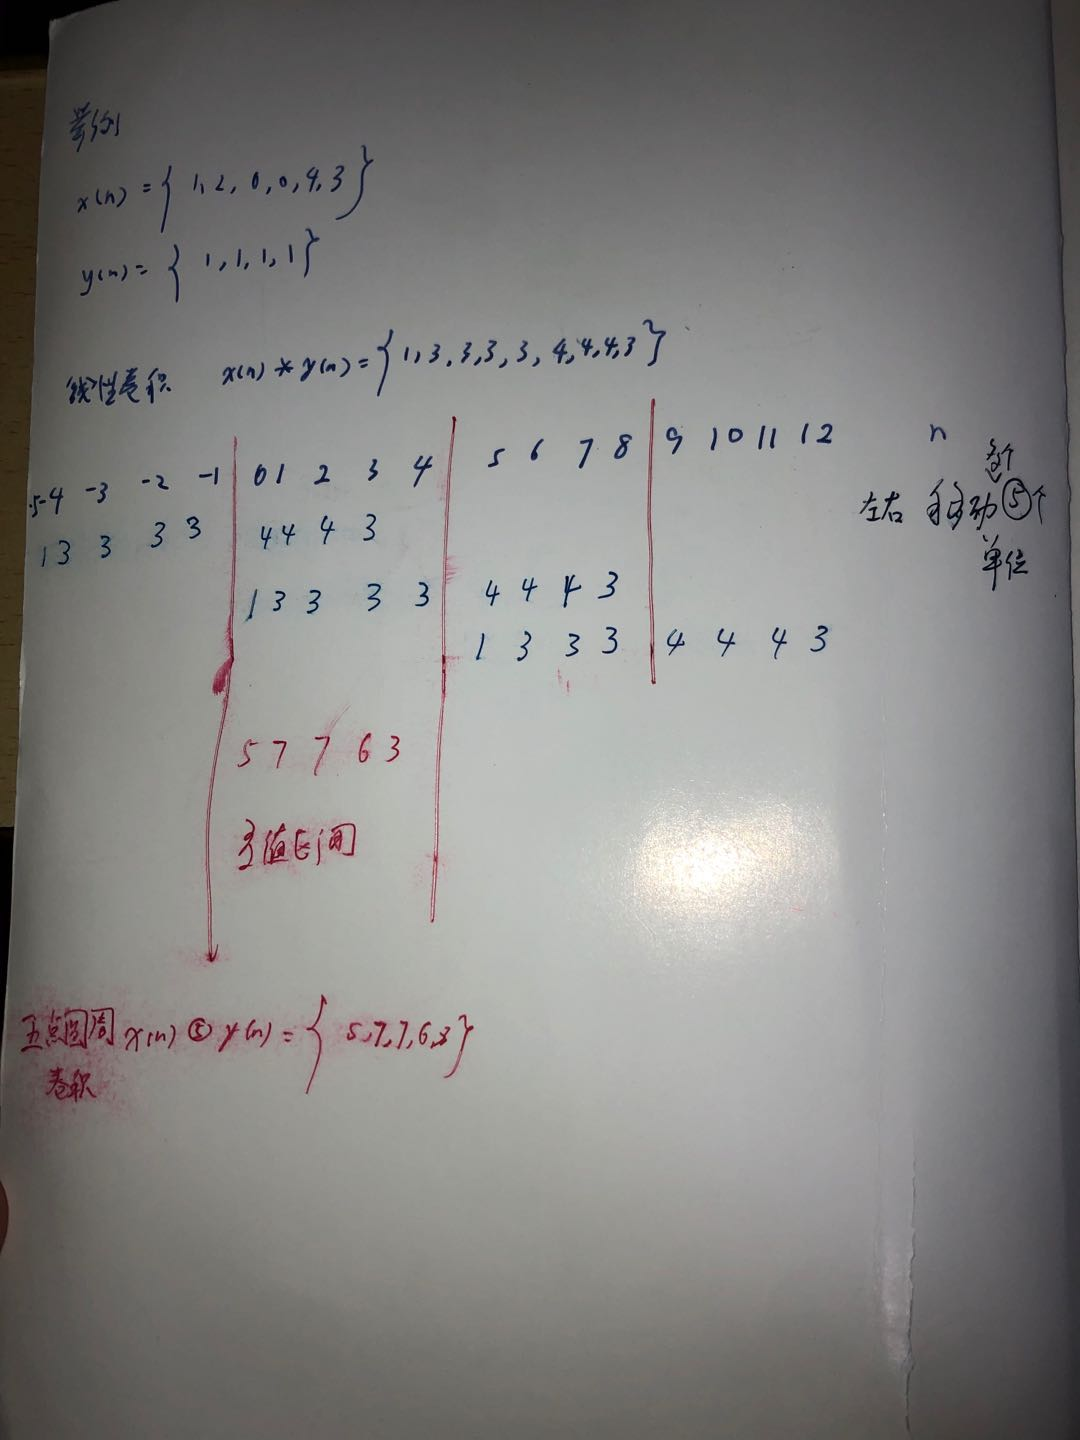 举例
x(n) = { 1, 2, 0, 0, 4, 3 }
y(n) = { 1, 1, 1, 1 }
线性卷积 x(n) * y(n) = { 1, 3, 3, 3, 3, 4, 4, 4, 3 }
-5 -4 -3 -2 -1 0 1 2 3 4 5 6 7 8 9 10 11 12 n
左右各移动⑤个单位
1 3 3 3 3 4 4 4 3
1 3 3 3 3 4 4 4 3
1 3 3 3 4 4 4 3
5 7 7 6 3
主值区间
五点圆周卷积 x(n) ⑤ y(n) = { 5, 7, 7, 6, 3 }